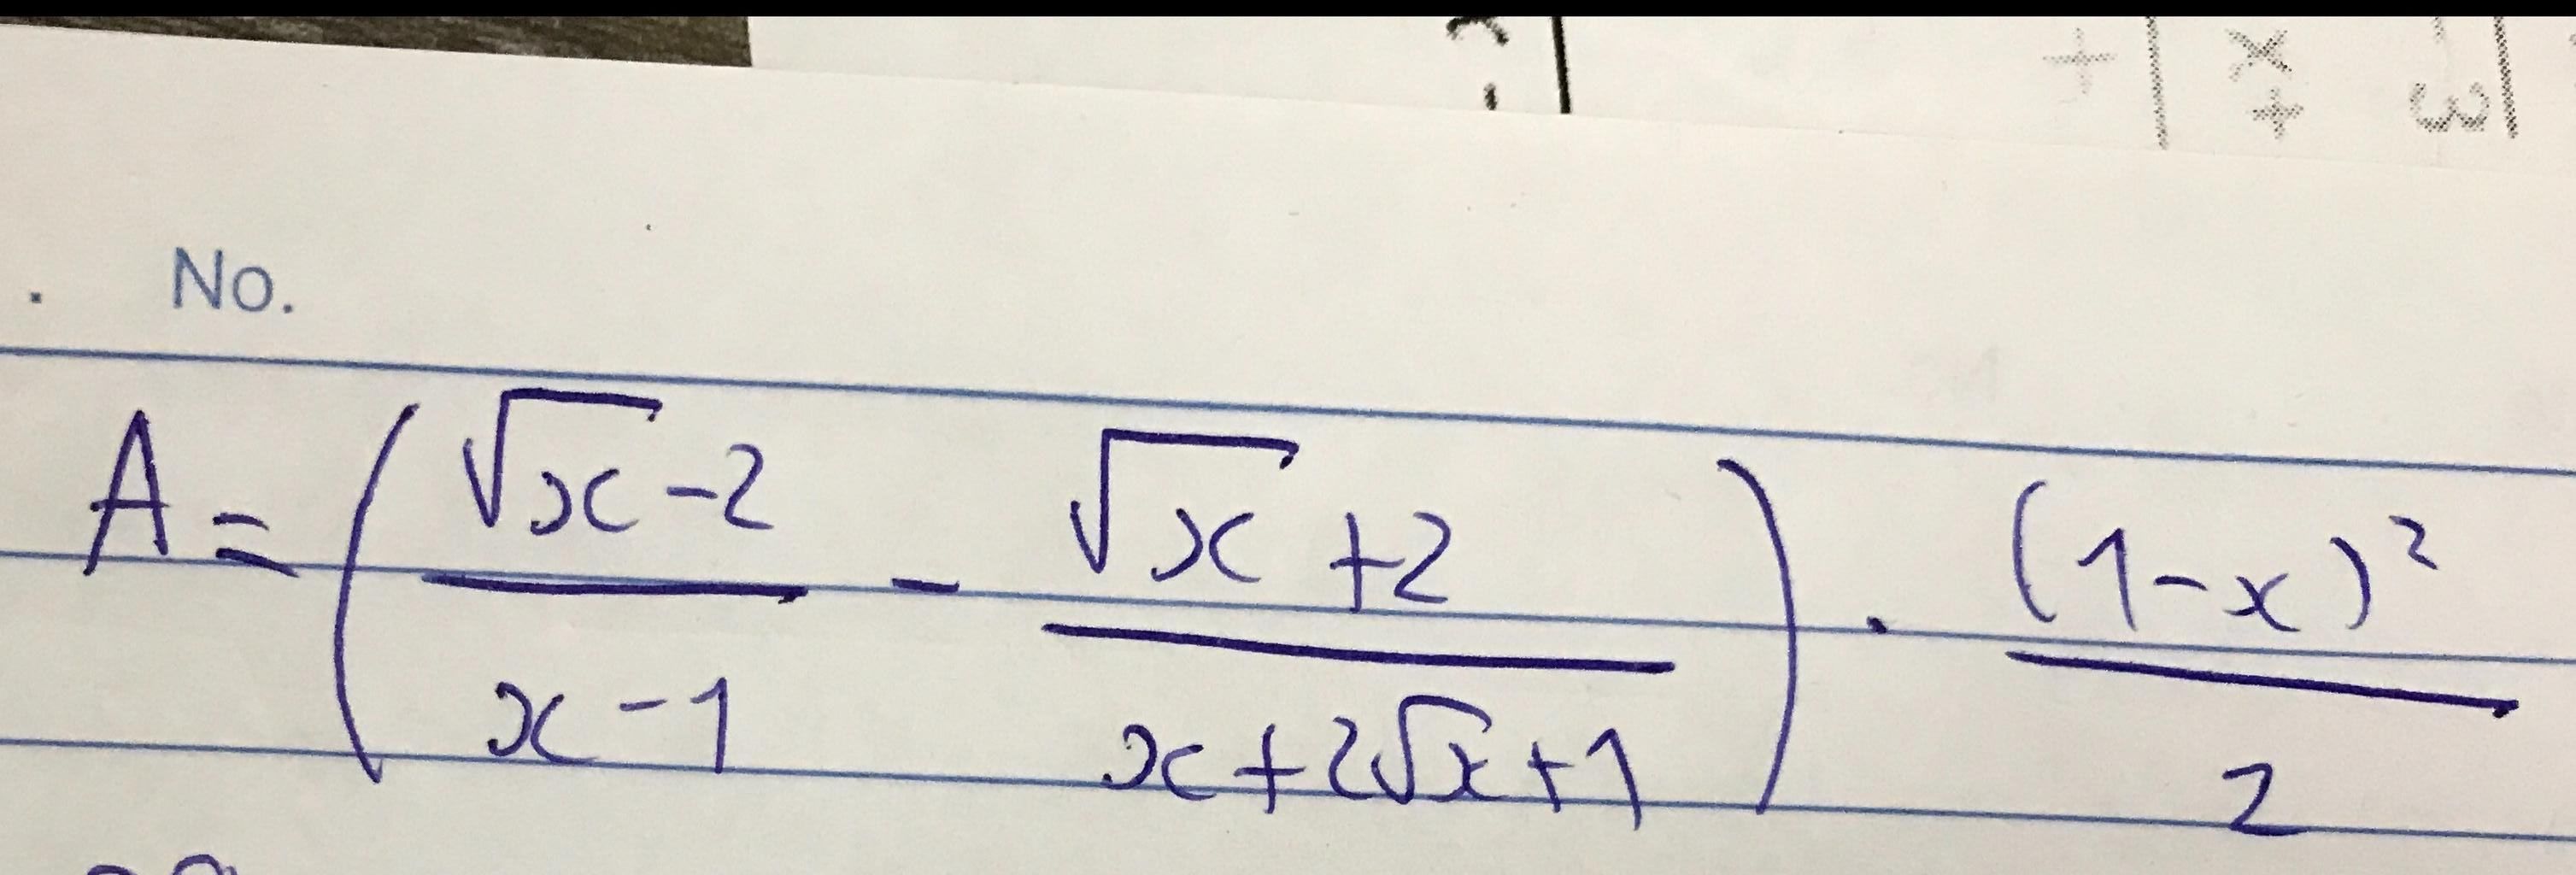 No.
A = ( (√x - 2)/(x - 1) - (√x + 2)/(x + 2√x + 1) ) . (1 - x)²/2